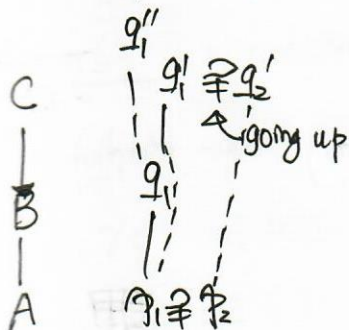 q₁''
C q₁' ⊋ q₂'
going up
B q₁
A p₁ ⊋ p₂